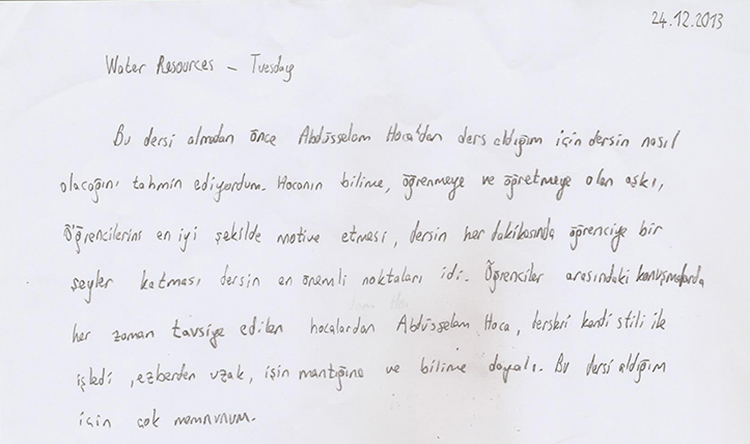 24.12.2013
Water Resources - Tuesday
Bu dersi almadan önce Abdüsselam Hoca'dan ders aldığım için dersin nasıl
olacağını tahmin ediyordum. Hocanın bilime, öğrenmeye ve öğretmeye olan aşkı,
Öğrencilerini en iyi şekilde motive etmesi, dersin her dakikasında öğrenciye bir
şeyler katması dersin en önemli noktaları idi. Öğrenciler arasındaki konuşmalarda
her zaman tavsiye edilen hocalardan Abdüsselam Hoca, dersleri kendi stili ile
işledi, ezberden uzak, işin mantığına ve bilime dayalı. Bu dersi aldığım
için çok memnunum.